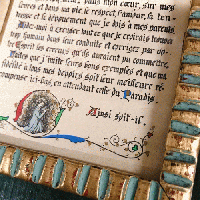 plus mon cœur, sur mes
lèvres et dans ma vie le respect, l'amour, la ten-
dresse et le dévouement que je dois à mes parents.
Aidez-moi à excuser tout ce que je croirais trouver
trop humain dans leur conduite et corrigez par vo-
tre Esprit les erreurs qu'ils auraient pu commettre.
Faites que j'imite leurs bons exemples et que ma
fidélité à tous mes devoirs soit leur meilleure ré-
compense ici-bas, en attendant celle du Paradis.
Ainsi soit-il.